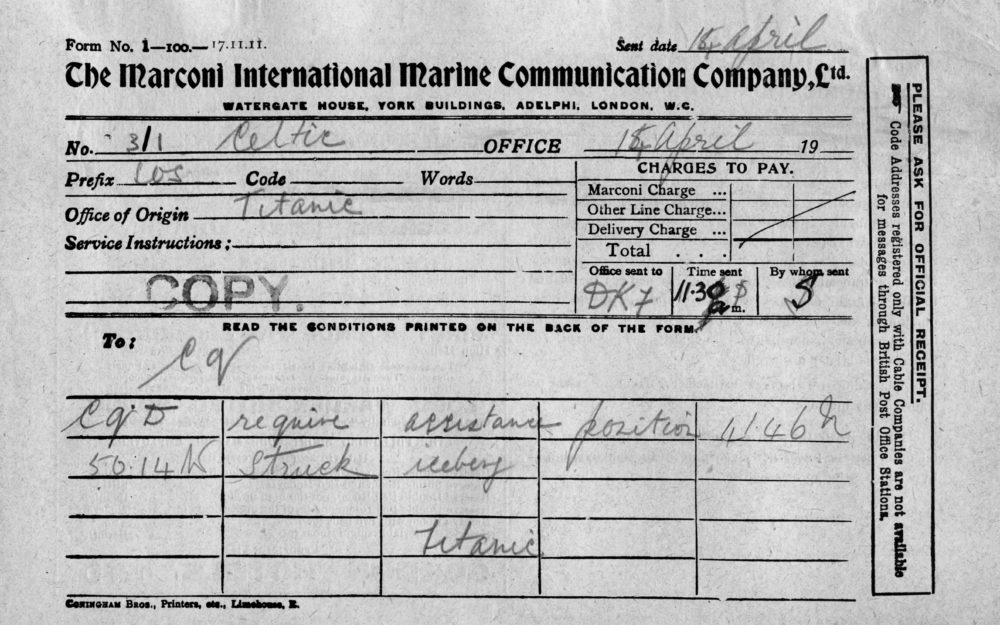 Form No. 1—100.—17.11.11.
Sent date 14 April
The Marconi International Marine Communication Company, Ltd.
WATERGATE HOUSE, YORK BUILDINGS, ADELPHI, LONDON, W.C.
No. 3/1 Celtic OFFICE 14 April 19
Prefix Code Words
Office of Origin Titanic
Service Instructions:
COPY.
CHARGES TO PAY.
Marconi Charge ...
Other Line Charge...
Delivery Charge ...
Total . . .
Office sent to Time sent By whom sent
11.30 m. S
READ THE CONDITIONS PRINTED ON THE BACK OF THE FORM.
To:
Cq
CqD require assistance position 41.46 N
50.14 W Struck iceberg
Titanic
CONINGHAM BROS., Printers, etc., Limehouse, E.
PLEASE ASK FOR OFFICIAL RECEIPT.
Code Addresses registered only with Cable Companies are not available
for messages through British Post Office Stations.